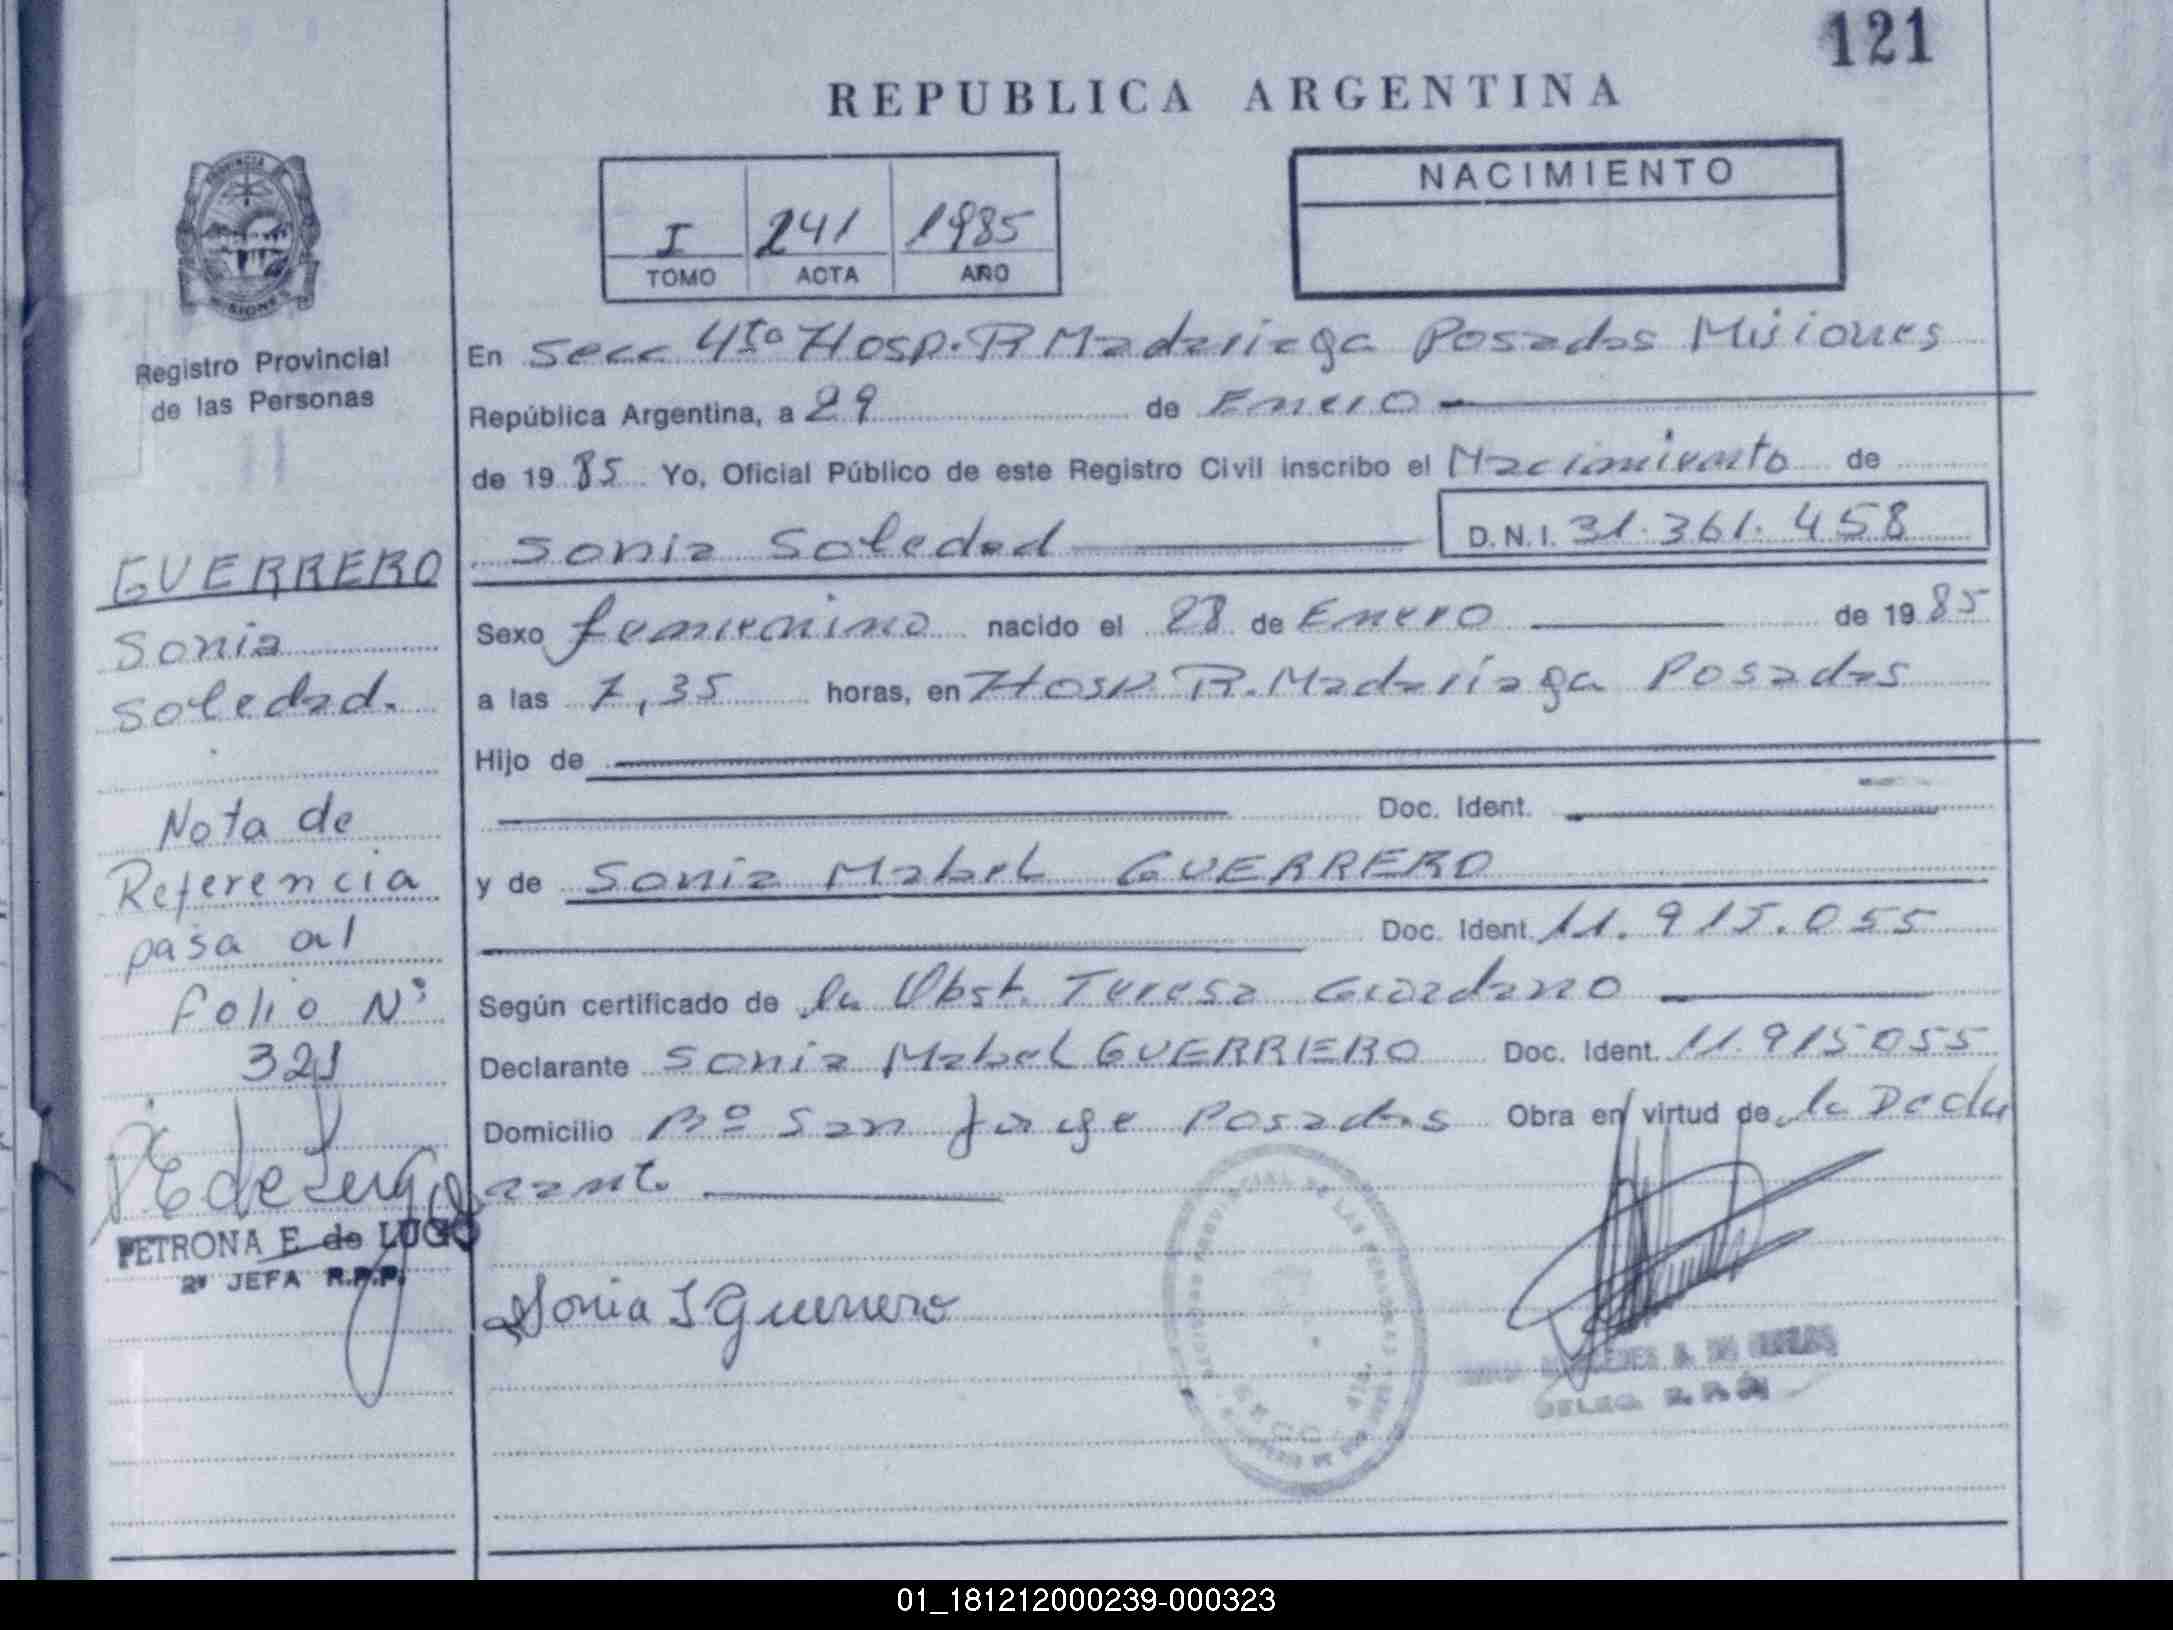 121
REPUBLICA ARGENTINA
PROVINCIA
MISIONES
Registro Provincial
de las Personas
I 241 1985
TOMO ACTA AÑO
NACIMIENTO
En Secc 4ta Hosp. R Madariaga Posadas Misiones
República Argentina, a 29 de Enero
de 19 85 Yo, Oficial Público de este Registro Civil inscribo el Nacimiento de
Sonia Soledad D.N.I. 31.361.458
Sexo femenino nacido el 28 de Enero de 19 85
a las 7,35 horas, en Hosp. R. Madariaga Posadas
Hijo de
Doc. Ident.
y de Sonia Mabel GUERRERO
Doc. Ident. 11.915.055
Según certificado de la Obst. Teresa Giordano
Declarante Sonia Mabel GUERRERO Doc. Ident. 11.915055
Domicilio Bº San Jorge Posadas Obra en virtud de la Decla
rante
Sonia Guerrero
GUERRERO
Sonia
Soledad.
Nota de
Referencia
pasa al
folio Nº
321
PETRONA E. de LUGO
2ª JEFA R.P.P.
01_181212000239-000323